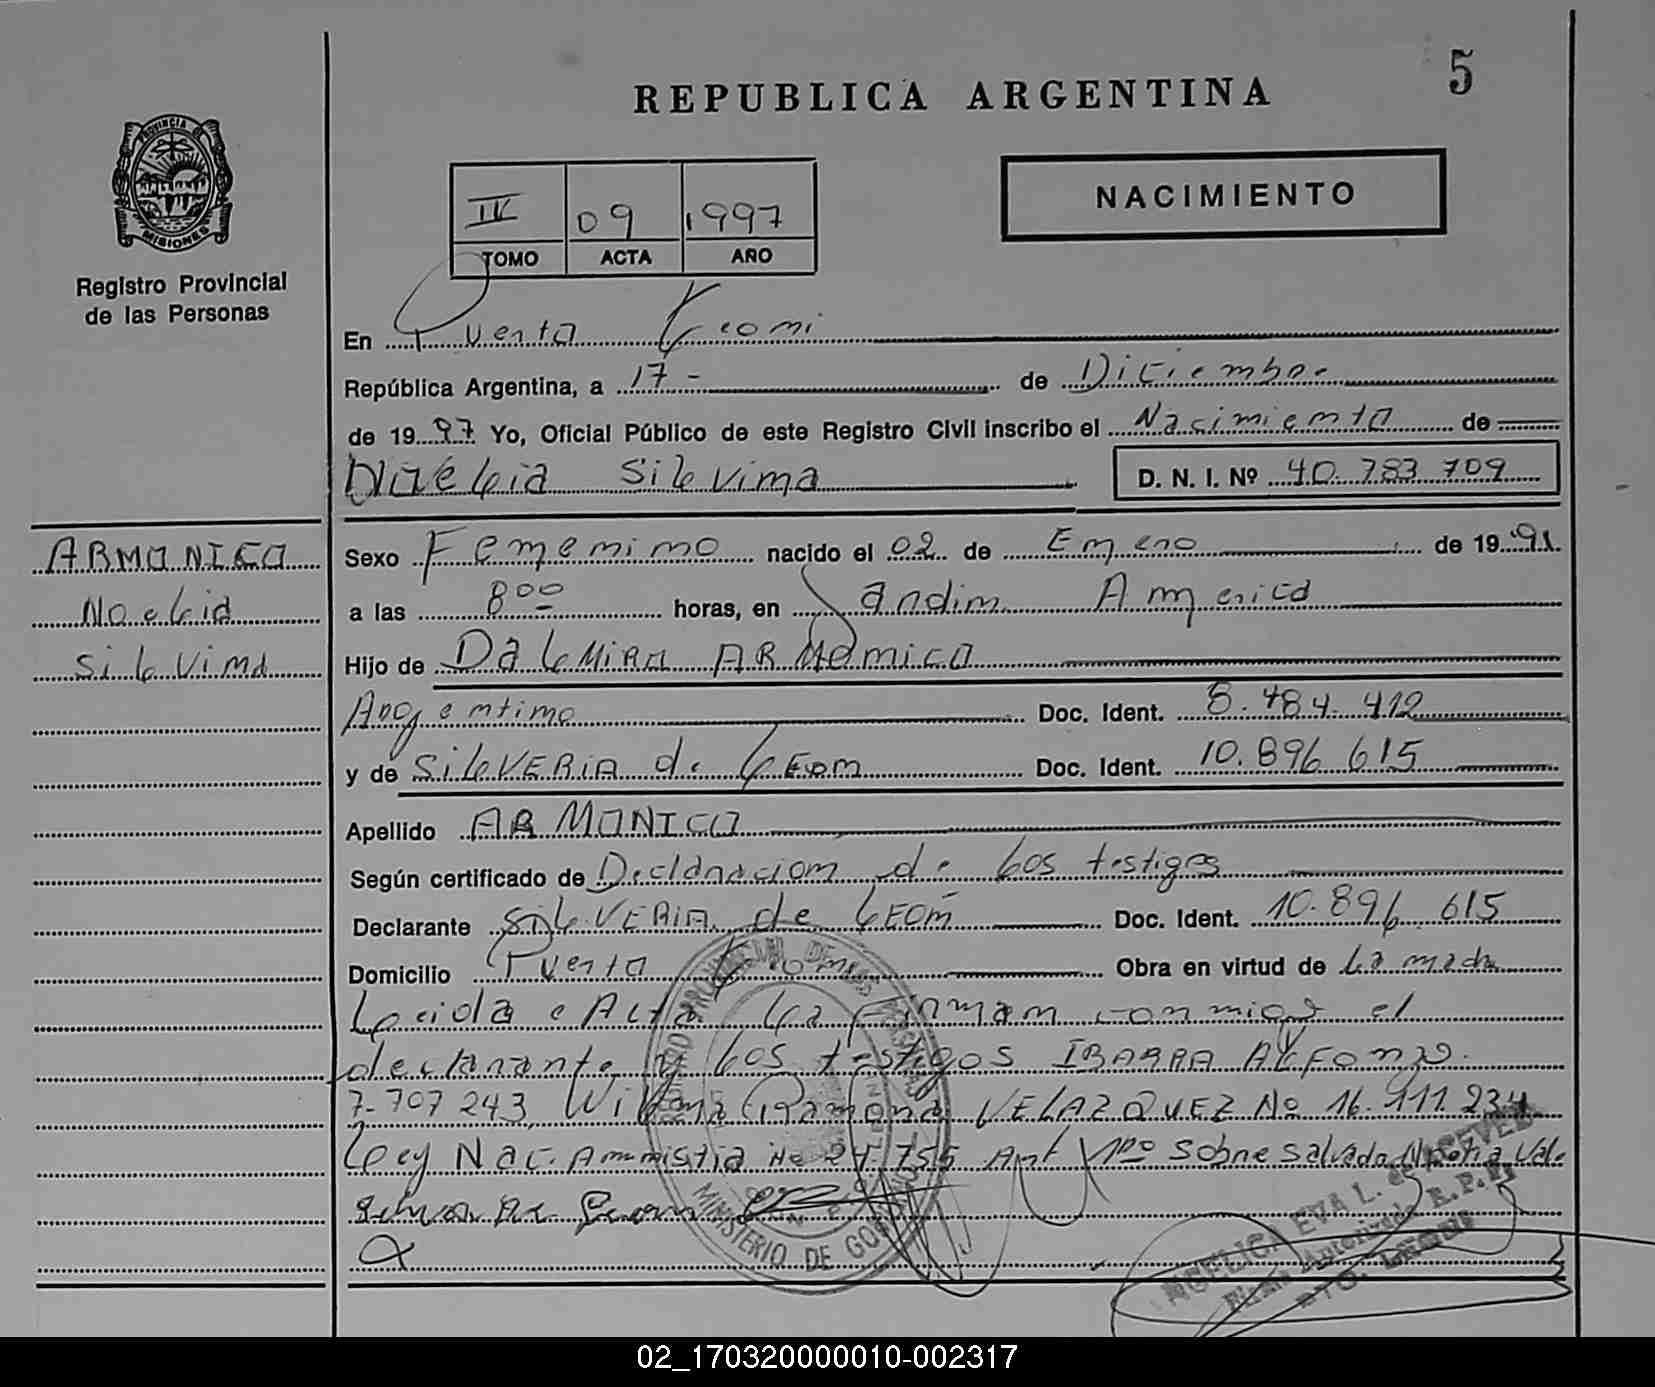 5
REPUBLICA ARGENTINA
PROVINCIA DE
MISIONES
Registro Provincial
de las Personas
IV 09 1997
TOMO ACTA AÑO
NACIMIENTO
En Puerto Leoni
República Argentina, a 17 - de Diciembre
de 1997 Yo, Oficial Público de este Registro Civil inscribo el Nacimiento de
Noelia Silvina D. N. I. Nº 40.783.709
ARMONICO
Noelia
Silvina
Sexo Femenino nacido el 02 de Enero de 1991
a las 8 00 horas, en Jardin America
Hijo de DALMIRO ARMONICO
Argentino Doc. Ident. 8.484.412
y de SILVERIA de LEON Doc. Ident. 10.896.615
Apellido ARMONICO
Según certificado de Declaracion de los testigos
Declarante SILVERIA de LEON Doc. Ident. 10.896.615
Domicilio Puerto Leoni Obra en virtud de la madre
Leida e Acta la Firman conmigo el
declarante y los testigos IBARRA ALFONZO
7.707.243, Wilma Ramona VELAZQUEZ No 16.911.234
Ley Nac. Amnistia No 24.755 Art 1ro Sobre salvado Noelia Vale
MINISTERIO DE GOBIERNO
ANGELICA EVA L. de ACEVEDO
02_170320000010-002317